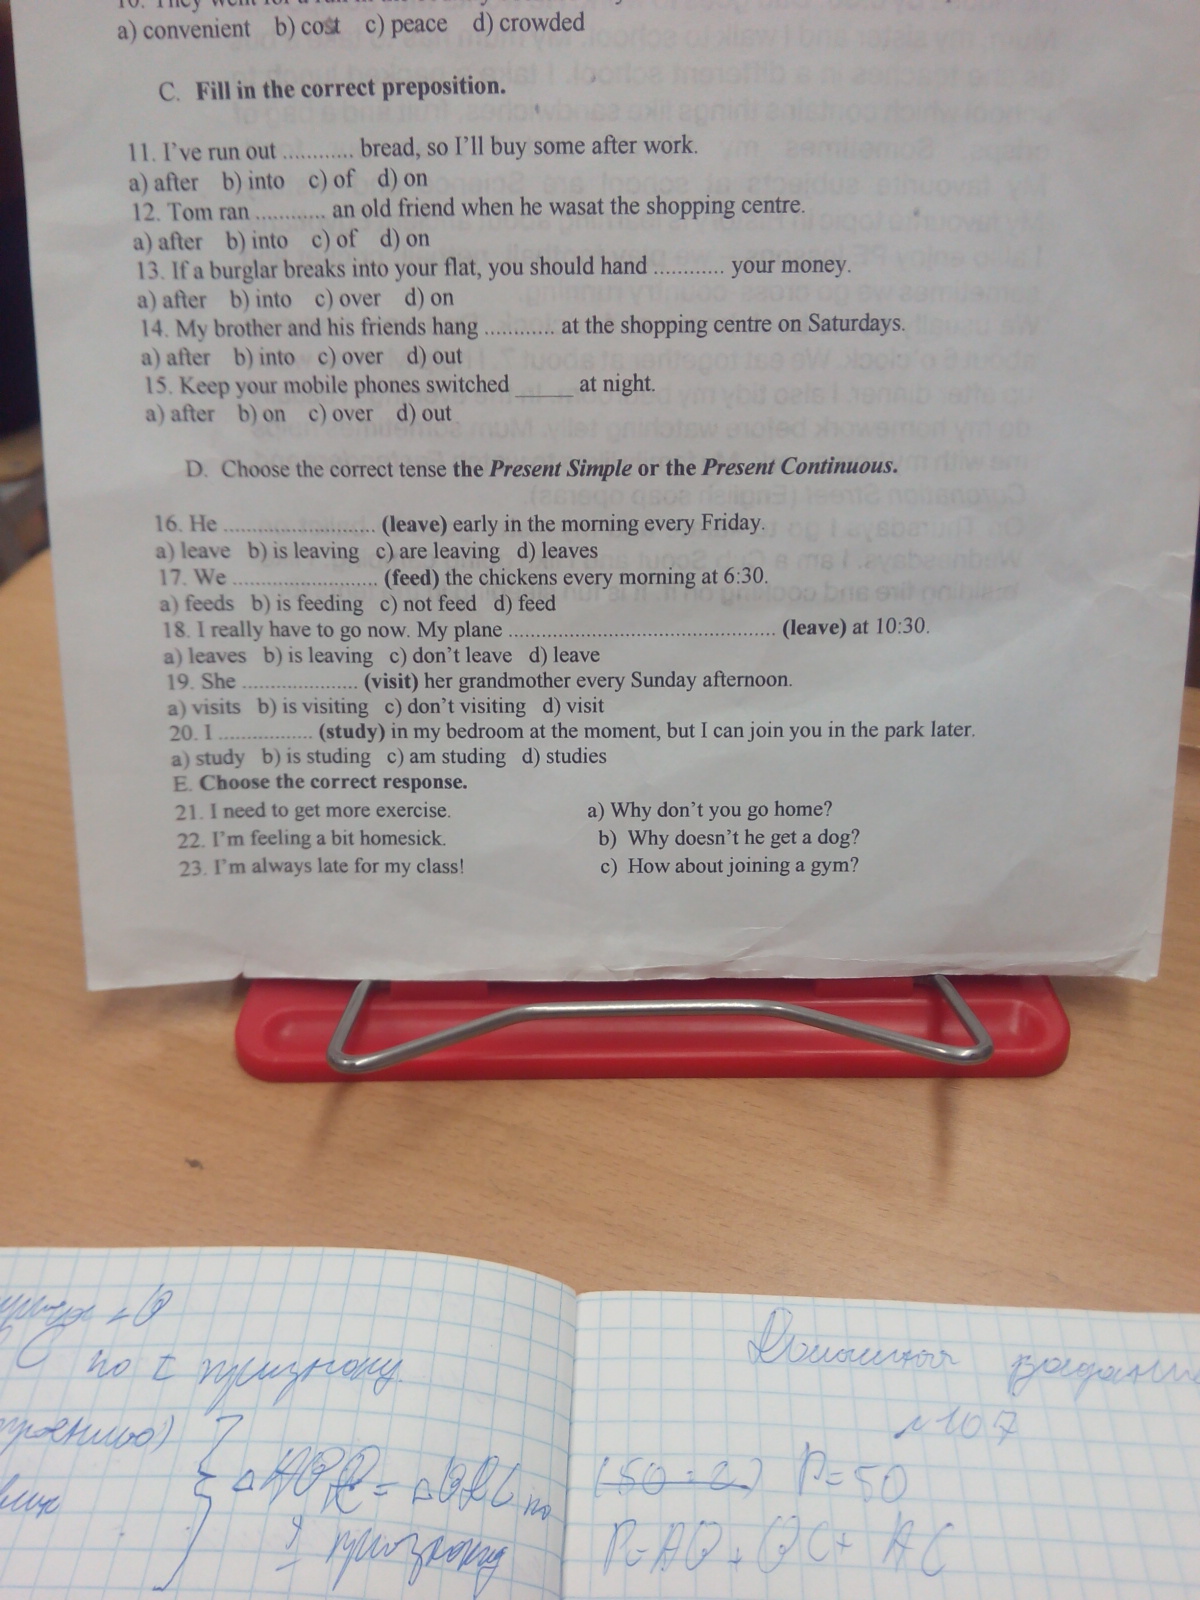 a) convenient b) cost c) peace d) crowded
C. Fill in the correct preposition.
11. I've run out ............ bread, so I'll buy some after work.
a) after b) into c) of d) on
12. Tom ran ............ an old friend when he wasat the shopping centre.
a) after b) into c) of d) on
13. If a burglar breaks into your flat, you should hand ............ your money.
a) after b) into c) over d) on
14. My brother and his friends hang ............ at the shopping centre on Saturdays.
a) after b) into c) over d) out
15. Keep your mobile phones switched ______ at night.
a) after b) on c) over d) out
D. Choose the correct tense the Present Simple or the Present Continuous.
16. He .......................... (leave) early in the morning every Friday.
a) leave b) is leaving c) are leaving d) leaves
17. We ......................... (feed) the chickens every morning at 6:30.
a) feeds b) is feeding c) not feed d) feed
18. I really have to go now. My plane .............................................. (leave) at 10:30.
a) leaves b) is leaving c) don't leave d) leave
19. She .................... (visit) her grandmother every Sunday afternoon.
a) visits b) is visiting c) don't visiting d) visit
20. I ................ (study) in my bedroom at the moment, but I can join you in the park later.
a) study b) is studing c) am studing d) studies
E. Choose the correct response.
21. I need to get more exercise. a) Why don't you go home?
22. I'm feeling a bit homesick. b) Why doesn't he get a dog?
23. I'm always late for my class! c) How about joining a gym?
по I признаку.
по
I признаку
Домашняя
№107
P=50